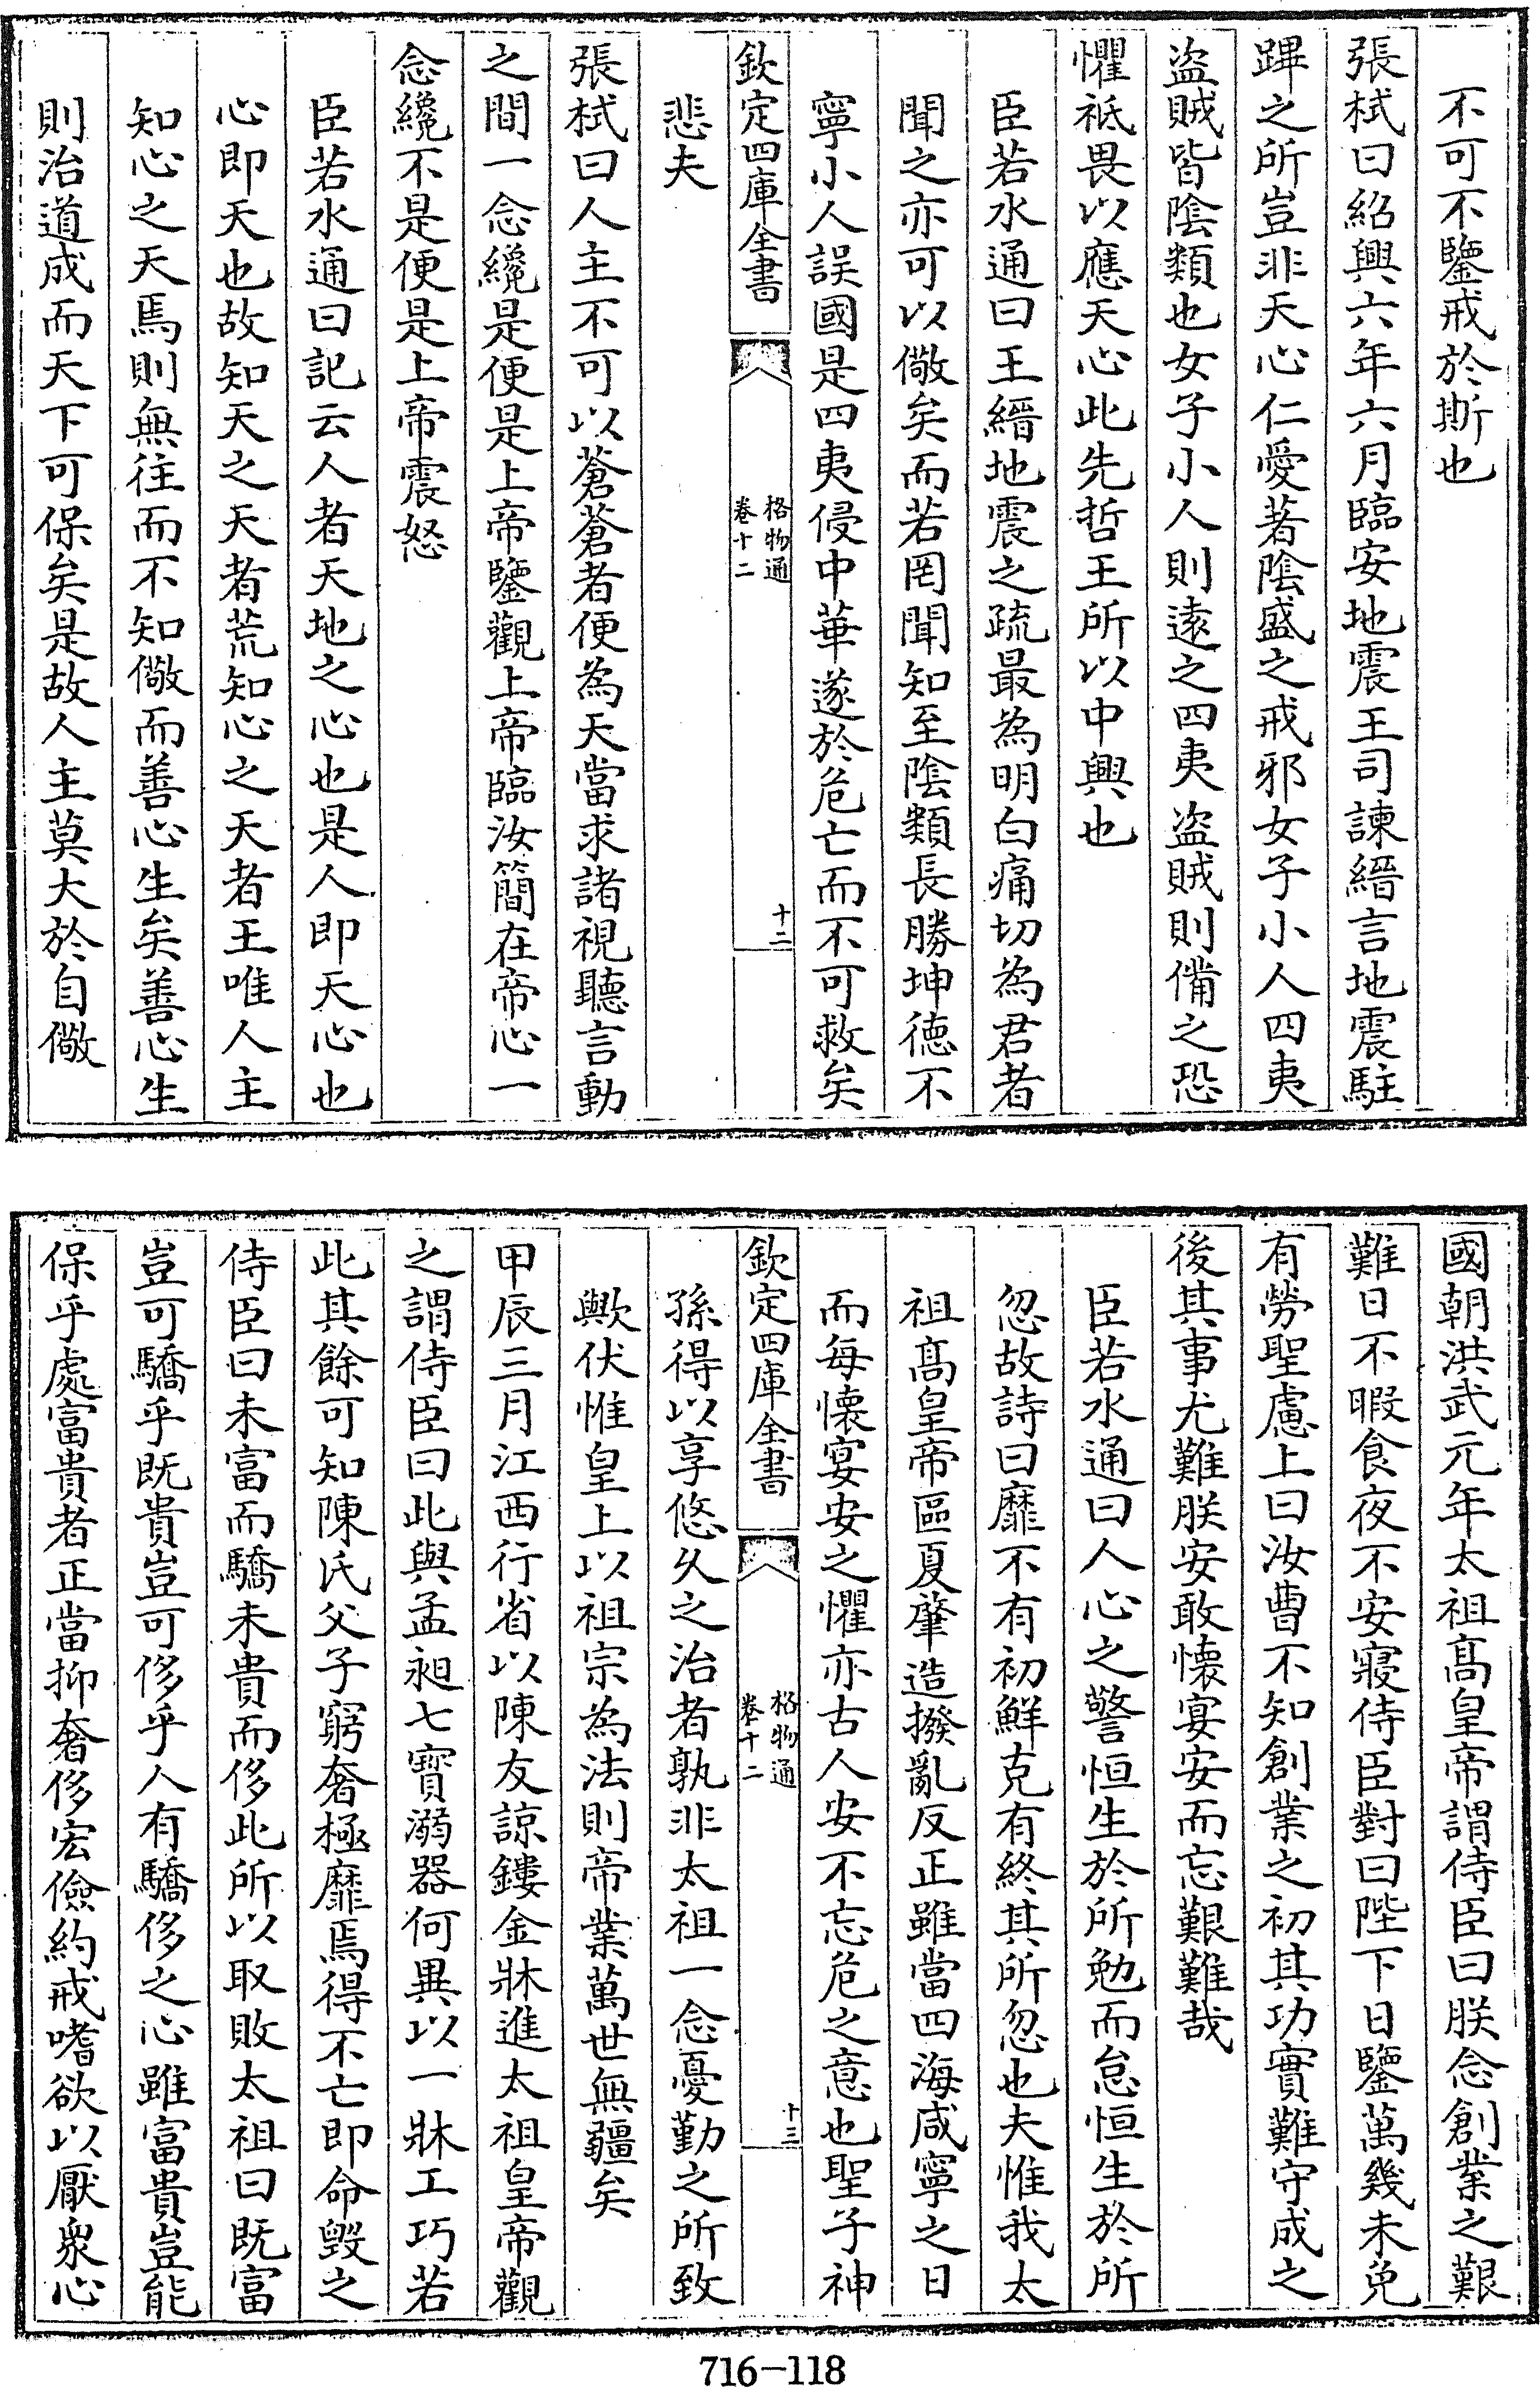 不可不鑒戒於斯也
張栻曰紹興六年六月臨安地震王司諫縉言地震駐
蹕之所豈非天心仁愛著陰盛之戒邪女子小人四夷
盜賊皆陰類也女子小人則遠之四夷盜賊則備之恐
懼祗畏以應天心此先哲王所以中興也
臣若水通曰王縉地震之疏最為明白痛切為君者
聞之亦可以儆矣而若罔聞知至陰類長勝坤德不
寧小人誤國是四夷侵中華遂於危亡而不可救矣
欽定四庫全書
格物通
卷十二
十二
悲夫
張栻曰人主不可以蒼蒼者便為天當求諸視聽言動
之間一念纔是便是上帝鑒觀上帝臨汝簡在帝心一
念纔不是便是上帝震怒
臣若水通曰記云人者天地之心也是人即天心也
心即天也故知天之天者荒知心之天者王唯人主
知心之天焉則無往而不知儆而善心生矣善心生
則治道成而天下可保矣是故人主莫大於自儆
國朝洪武元年太祖髙皇帝謂侍臣曰朕念創業之艱
難日不暇食夜不安寢侍臣對曰陛下日鑒萬幾未免
有勞聖慮上曰汝曹不知創業之初其功實難守成之
後其事尤難朕安敢懷宴安而忘艱難哉
臣若水通曰人心之警恒生於所勉而怠恒生於所
忽故詩曰靡不有初鮮克有終其所忽也夫惟我太
祖髙皇帝區夏肇造撥亂反正雖當四海咸寧之日
而每懷宴安之懼亦古人安不忘危之意也聖子神
欽定四庫全書
格物通
卷十二
十三
孫得以享悠久之治者孰非太祖一念憂勤之所致
歟伏惟皇上以祖宗為法則帝業萬世無疆矣
甲辰三月江西行省以陳友諒鏤金牀進太祖皇帝觀
之謂侍臣曰此與孟昶七寳溺器何異以一牀工巧若
此其餘可知陳氏父子窮奢極靡焉得不亡即命毀之
侍臣曰未富而驕未貴而侈此所以取敗太祖曰既富
豈可驕乎既貴豈可侈乎人有驕侈之心雖富貴豈能
保乎處富貴者正當抑奢侈宏儉約戒嗜欲以厭衆心
716-118